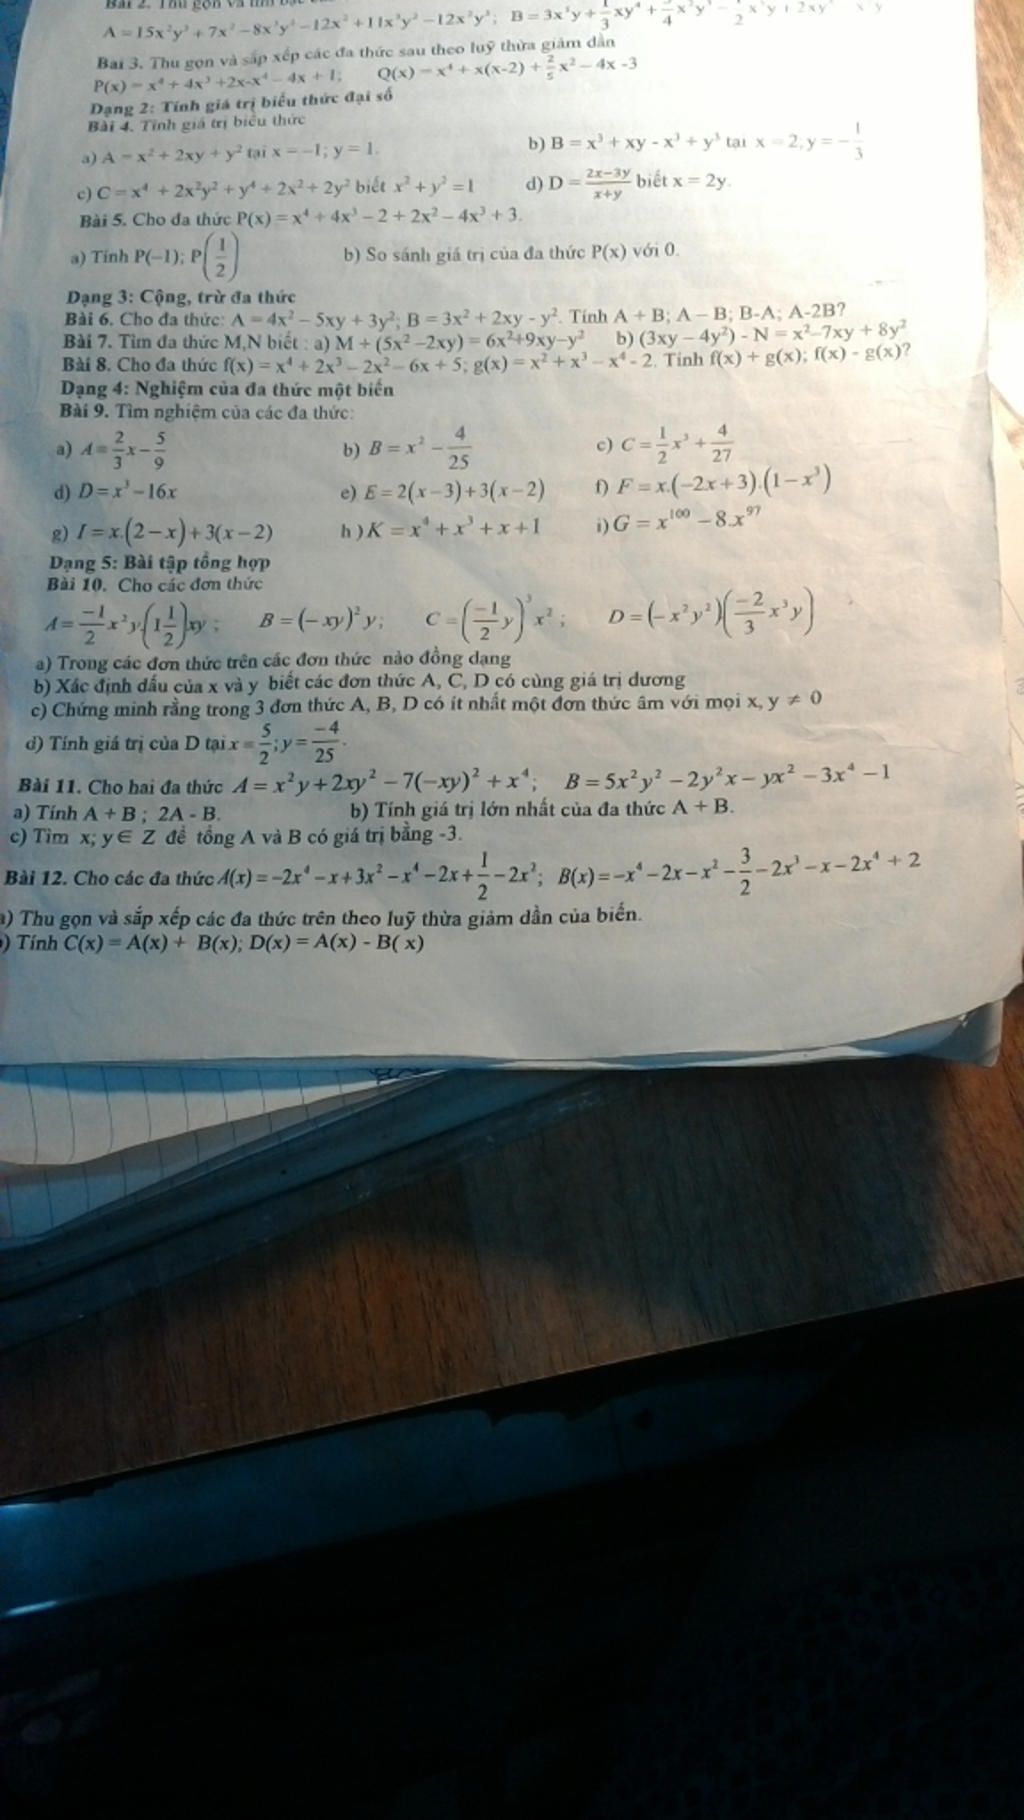 Bài 2. Thu gọn và tìm bậc
A = 15x²y³ + 7x² – 8x³y² – 12x² + 11x³y² – 12x²y³; B = 3x⁵y + 1/3 xy⁴ +
Bài 3. Thu gọn và sắp xếp các đa thức sau theo luỹ thừa giảm dần
P(x) = x⁴ + 4x³ +2x-x⁴ – 4x + 1; Q(x) = x⁴ + x(x-2) + 2/5 x² – 4x -3
Dạng 2: Tính giá trị biểu thức đại số
Bài 4. Tính giá trị biểu thức
a) A = x² + 2xy + y² tại x = –1; y = 1. b) B = x³ + xy - x³ + y³ tại x = 2; y = – 1/3
c) C = x⁴ + 2x²y² + y⁴ + 2x² + 2y² biết x² + y² = 1 d) D = (2x−3y)/(x+y) biết x = 2y.
Bài 5. Cho đa thức P(x) = x⁴ + 4x³ – 2 + 2x² – 4x³ + 3.
a) Tính P(–1); P(1/2) b) So sánh giá trị của đa thức P(x) với 0.
Dạng 3: Cộng, trừ đa thức
Bài 6. Cho đa thức: A = 4x² – 5xy + 3y²; B = 3x² + 2xy - y². Tính A + B; A – B; B-A; A-2B?
Bài 7. Tìm đa thức M,N biết : a) M + (5x² –2xy) = 6x²+9xy–y² b) (3xy – 4y²) - N = x²–7xy + 8y²
Bài 8. Cho đa thức f(x) = x⁴ + 2x³ – 2x² – 6x + 5; g(x) = x² + x³ – x⁴ - 2. Tính f(x) + g(x); f(x) - g(x)?
Dạng 4: Nghiệm của đa thức một biến
Bài 9. Tìm nghiệm của các đa thức:
a) A = 2/3 x − 5/9 b) B = x² − 4/25 c) C = 1/2 x³ + 4/27
d) D = x³ −16x e) E = 2(x−3)+3(x−2) f) F = x.(−2x+3).(1−x³)
g) I = x.(2−x)+3(x−2) h ) K = x⁴ + x³ + x + 1 i) G = x¹⁰⁰ − 8.x⁹⁷
Dạng 5: Bài tập tổng hợp
Bài 10. Cho các đơn thức
A = −1/2 x² y.(1 1/2)xy ; B = (− xy)² y; C = (−1/2 y)³ x² ; D = (− x² y²)(−2/3 x³ y)
a) Trong các đơn thức trên các đơn thức nào đồng dạng
b) Xác định dấu của x và y biết các đơn thức A, C, D có cùng giá trị dương
c) Chứng minh rằng trong 3 đơn thức A, B, D có ít nhất một đơn thức âm với mọi x, y ≠ 0
d) Tính giá trị của D tại x = 5/2 ; y = −4/25 .
Bài 11. Cho hai đa thức A = x² y + 2xy² − 7(−xy)² + x⁴; B = 5x² y² − 2y² x − yx² − 3x⁴ − 1
a) Tính A + B ; 2A - B. b) Tính giá trị lớn nhất của đa thức A + B.
c) Tìm x; y ∈ Z để tổng A và B có giá trị bằng -3.
Bài 12. Cho các đa thức A(x) = −2x⁴ − x + 3x² − x⁴ − 2x + 1/2 − 2x²; B(x) = −x⁴ − 2x − x² − 3/2 − 2x³ − x − 2x⁴ + 2
a) Thu gọn và sắp xếp các đa thức trên theo luỹ thừa giảm dần của biến.
) Tính C(x) = A(x) + B(x); D(x) = A(x) - B( x)